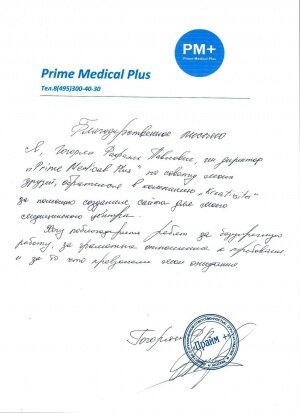 PM+
Prime Medical Plus
Prime Medical Plus
Тел.8(495)300-40-30
Благодарственное письмо
Я, Погорян Рафаэль Павлович, ген директор
"Prime Medical Plus" по совету моих
друзей, обратился в компанию "Kreativita"
за помощью создания сайта для моего
медицинского центра.
Хочу поблагодарить ребят за безупречную
работу, за грамотное отношение к требованиям
и за то что превзошли мои ожидания
Погорян
Прайм +